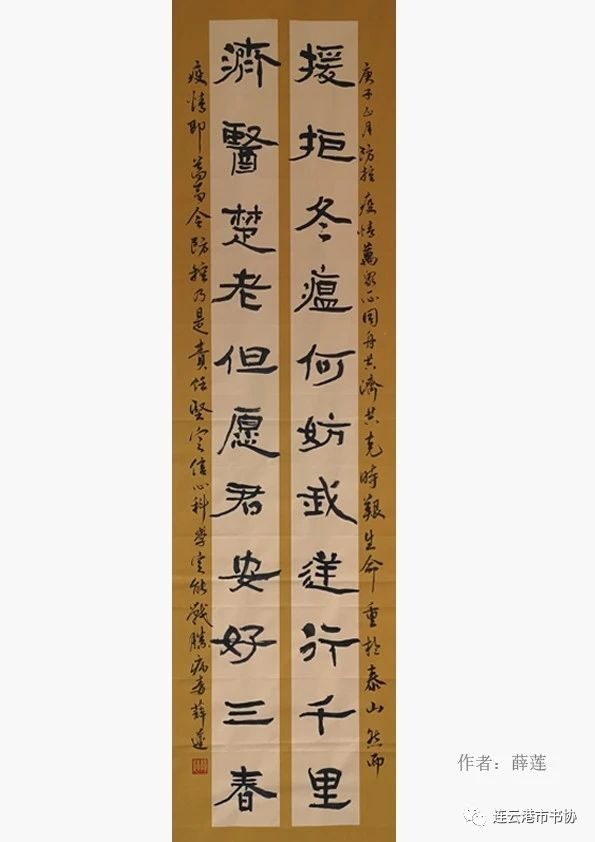 庚子正月防控疫情萬眾一心同舟共濟共克時艱生命重於泰山然而
援拒冬瘟何妨我逆行千里
濟醫楚老但愿君安好三春
疫情即令防控乃是責任堅定信心科學定能戰勝病毒薛蓮
作者：薛莲
连云港市书协